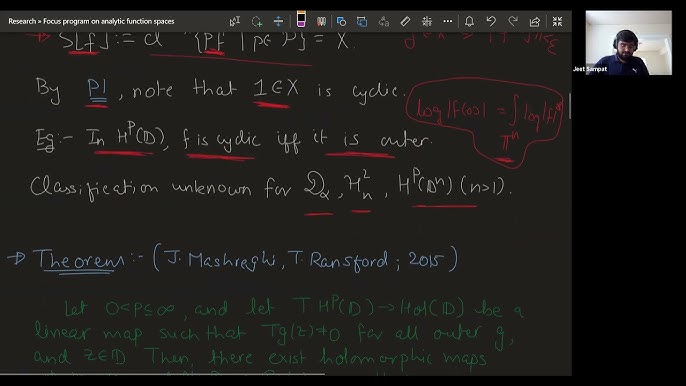 Research » Focus program on analytic function spaces
Jeet Sampat
→ S[f] := cl {pf | p∈P} = X.
By P1, note that 1∈X is cyclic.
log|f(0)| = ∫ log|f|
𝕋ⁿ
Eg:- In Hᴾ(𝔻), f is cyclic iff it is outer.
Classification unknown for 𝒟α, H²ₙ, Hᴾ(𝔻ⁿ) (n>1).
→ Theorem:- (J. Mashreghi, T. Ransford; 2015)
Let 0<p≤∞, and let T Hᴾ(𝔻)→Hol(𝔻) be a
linear map such that Tg(z)≠0 for all outer g,
and z∈𝔻 Then, there exist holomorphic maps